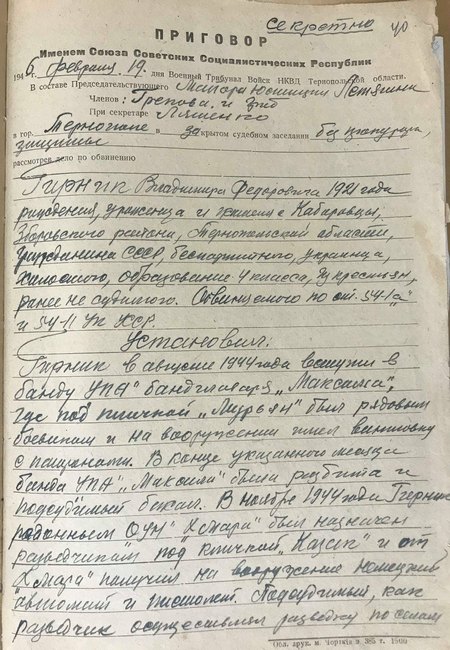 секретно 40
ПРИГОВОР
Именем Союза Советских Социалистических Республик
1946 г. февраля 19. дня Военный Трибунал Войск НКВД Тернопольской области.
В составе Председательствующего Майора юстиции
Членов: Грекова, и
При секретаре Ляшенко
в гор. Тернополе в закрытом судебном заседании без прокурора,
защиты
рассмотрев дело по обвинению
Гирник Владимира Федоровича 1921 года
рождения, уроженца и жителя с Кабаровцы,
Зборовского района, Тернопольской области,
гражданина СССР, беспартийного, украинца,
холостого, образование 4 класса, из крестьян,
ранее не судимого. Обвиняемого по ст. 54-1"а"
и 54-11 УК УССР
Установил:
Гирник в августе 1944 года вступил в
банду УПА" бандглаваря „Максима",
где под кличкой был рядовым
боевиком и на вооружении имел винтовку
с патронами. В конце указанного месяца
банда УПА" „Максима" была разбита и
подсудимый бежал. В ноябре 1944 года Гирник
районным ОУН" „Хмара" был назначен
разведчиком под кличкой „Казак" и от
„Хмара" получил на вооружение немецкий
автомат и пистолет. Подсудимый, как
разведчик осуществлял разведку по селам
Обл. друк. м. Чортків з. 385 т. 1500